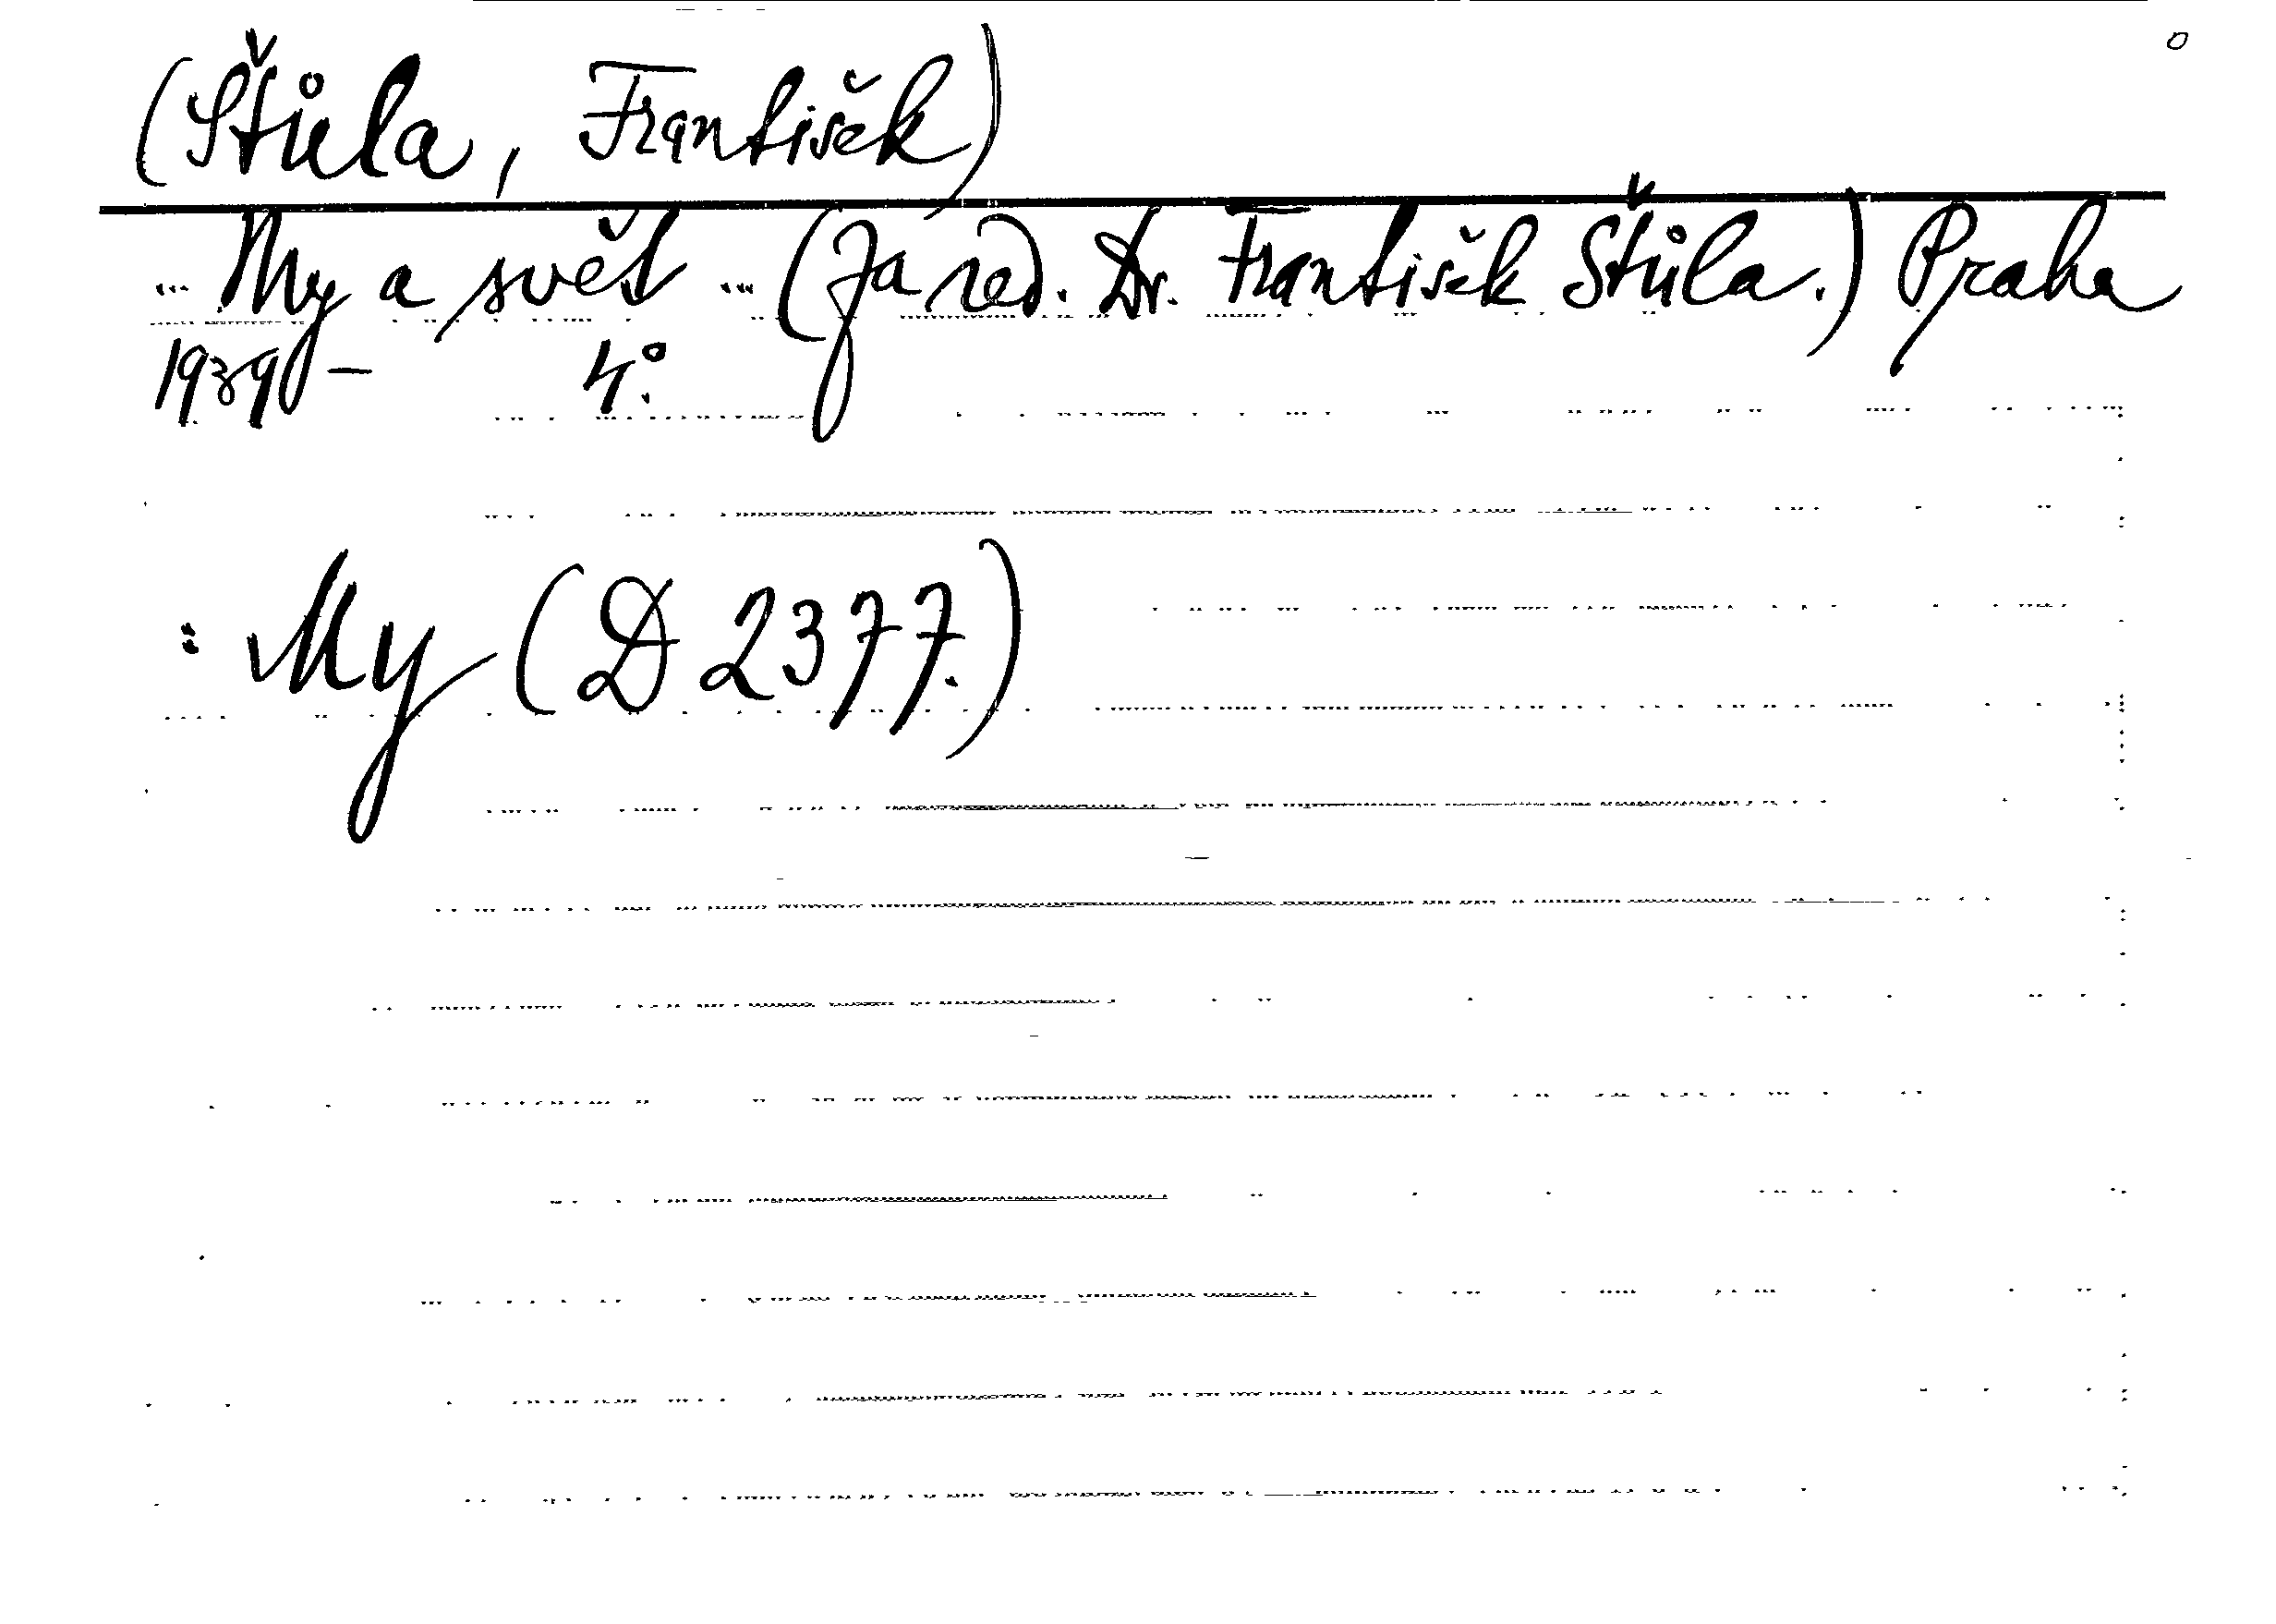 (Štůla, František)
... My a svět ... (Za red. Dr. František Štůla.) Praha
1939 – 4°.
: My (D 2377.)